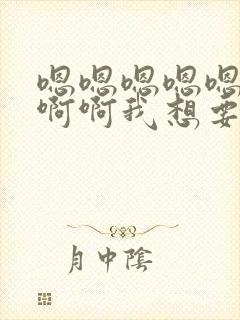 嗯嗯嗯嗯嗯
啊啊我想要
月中陰